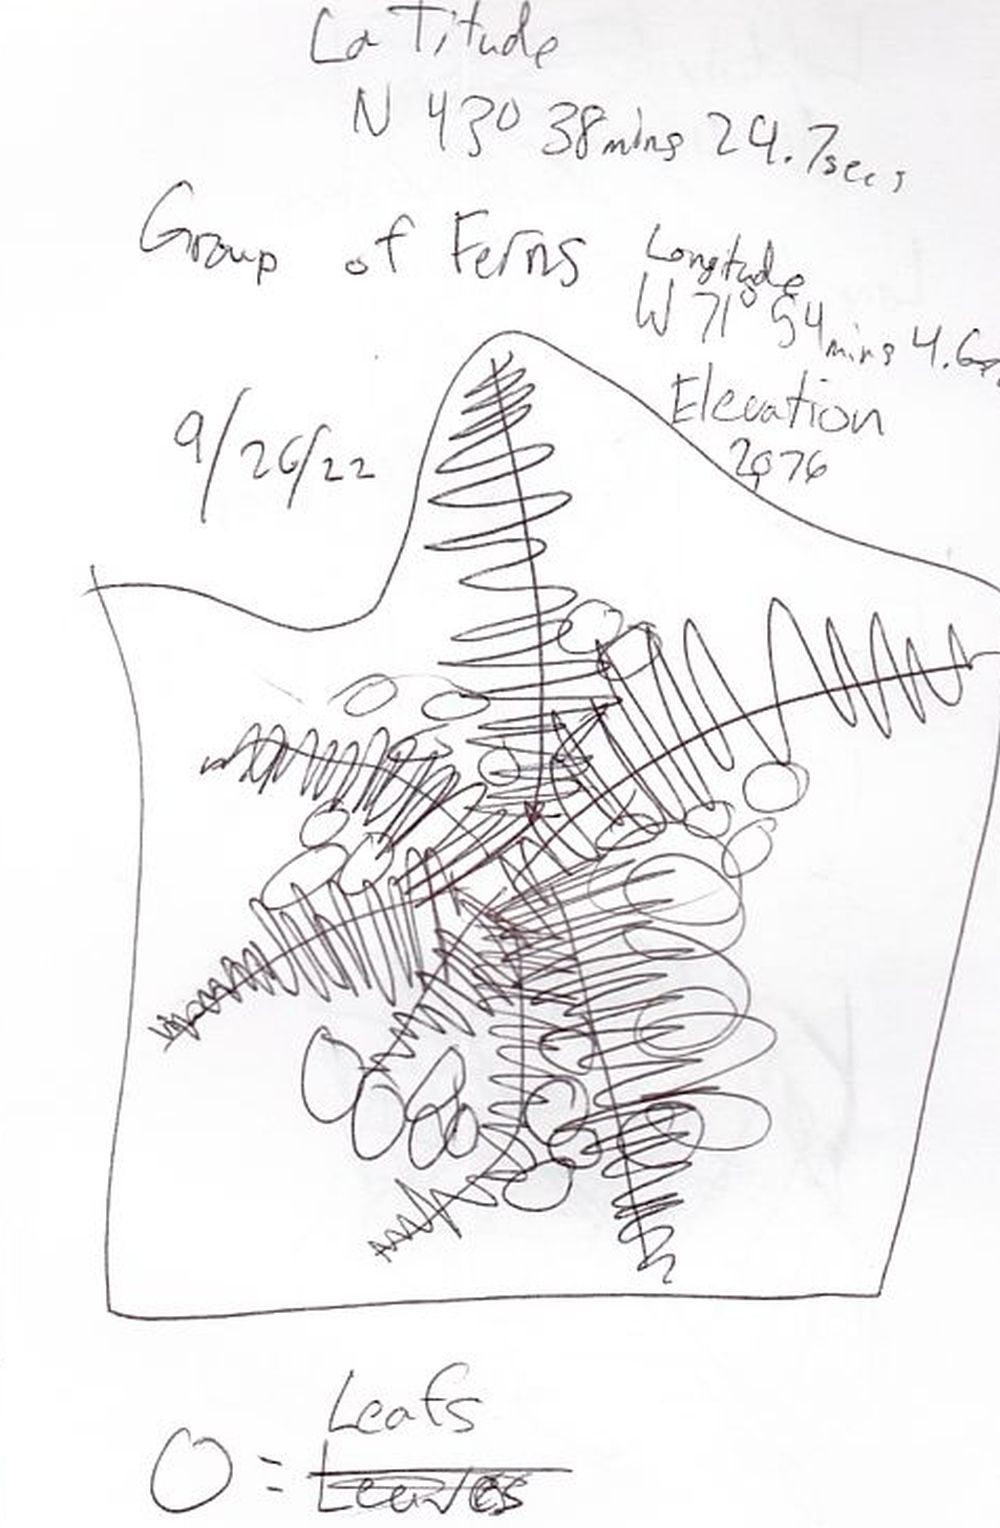 Latitude
N 43° 38mins 24.7secs
Group of Ferns
Longtude
W 71° 54mins 4.6
Elevation
2076
9/26/22
Leafs
O = Leaves